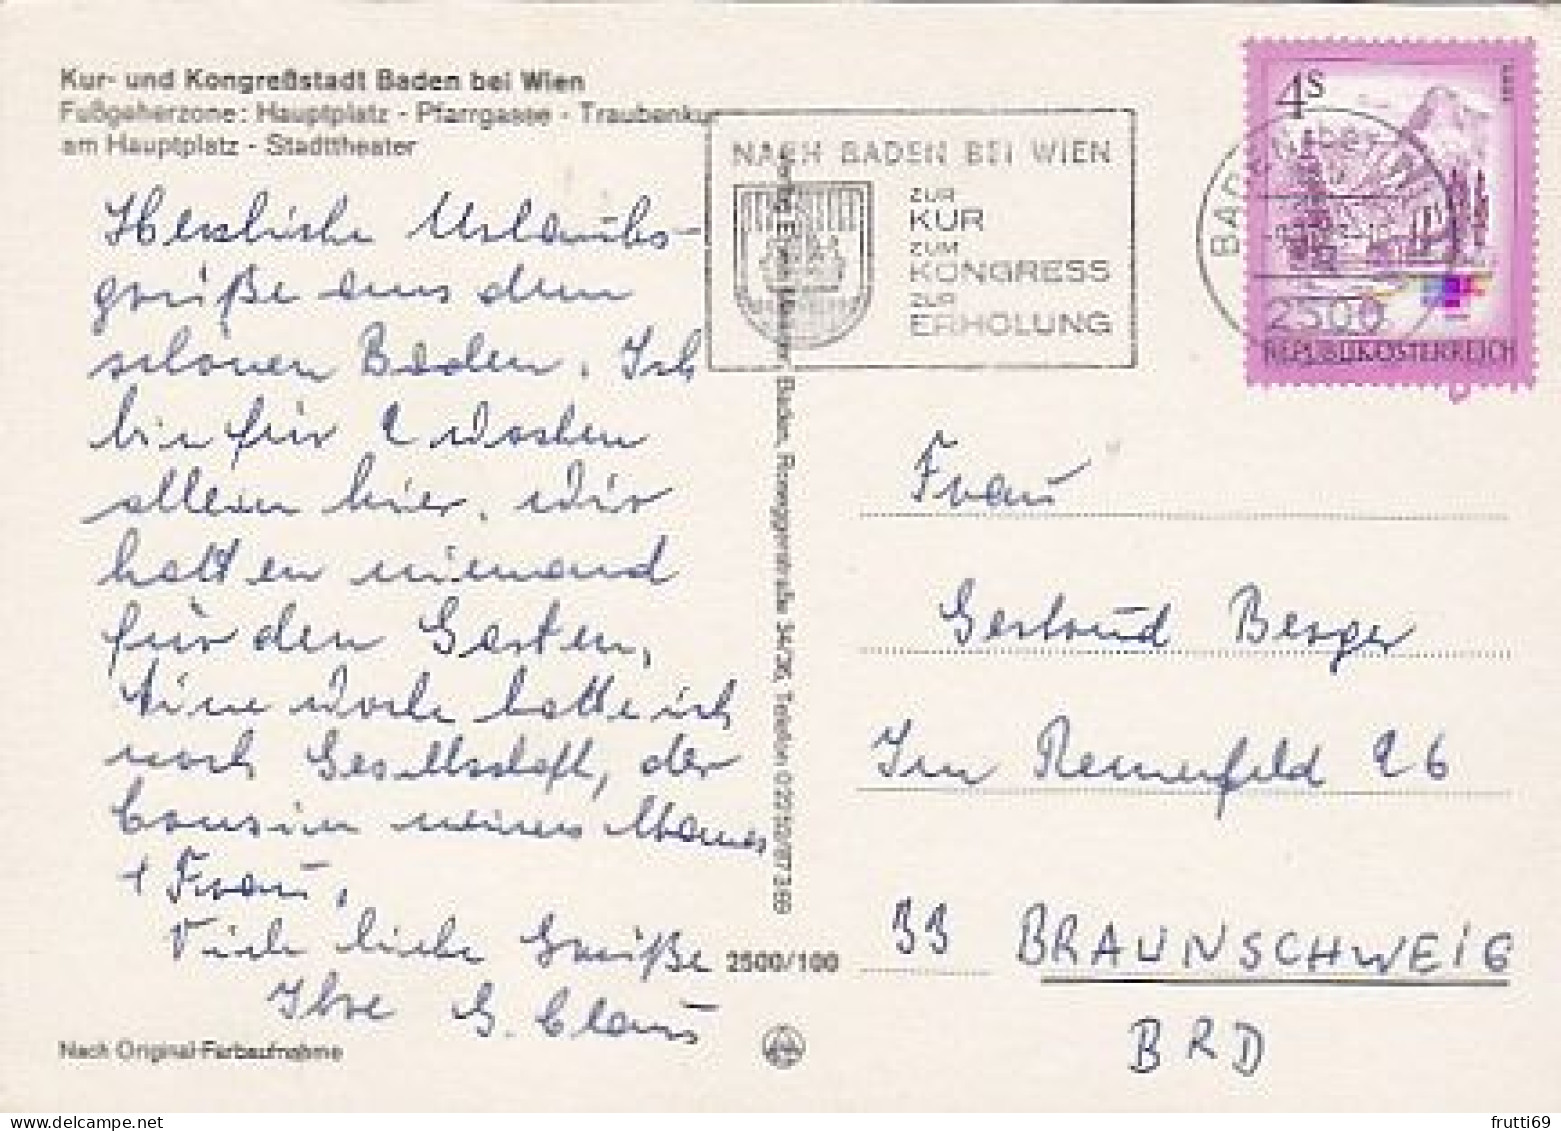 Kur- und Kongreßstadt Baden bei Wien
Fußgeherzone: Hauptplatz - Pfarrgasse - Traubenkur
am Hauptplatz - Stadttheater
Herzliche Urlaubs-
grüße aus dem
schönen Baden. Ich
bin für 2 Wochen
allein hier. Wir
hatten niemand
für den Garten,
Eine Woche hatte ich
noch Gesellschaft, der
Cousin meines Mannes
+ Frau,
Viele liebe Grüße
Ihre G. Claus
Nach Original-Farbaufnahme
2500/100
Baden, Roseggerstraße 34/36, Telefon
NACH BADEN BEI WIEN
ZUR
KUR
ZUM
KONGRESS
ZUR
ERHOLUNG
4S
2500
REPUBLIK ÖSTERREICH
Frau
Gertrud Berger
Im Remenfeld 26
33 BRAUNSCHWEIG
BRD
frutti69